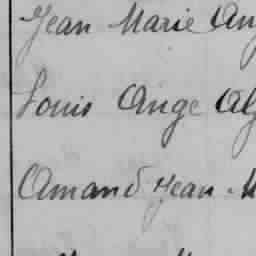 Jean Marie Ang
Louis Ange Al
Amand Jean M